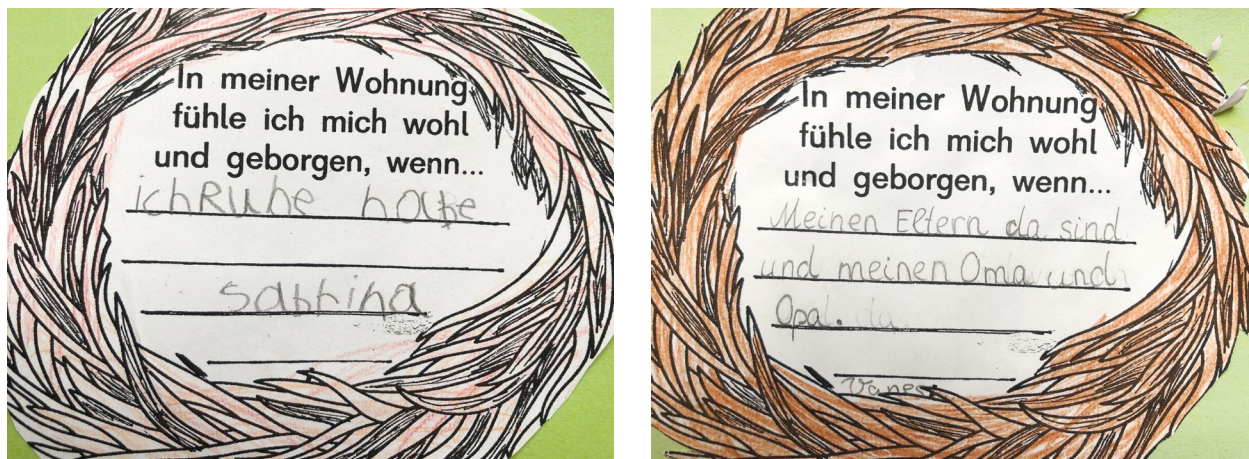 In meiner Wohnung
fühle ich mich wohl
und geborgen, wenn...
ich Ruhe habe
sabrina
In meiner Wohnung
fühle ich mich wohl
und geborgen, wenn...
Meinen Eltern da sind
und meinen Oma und
Opa.